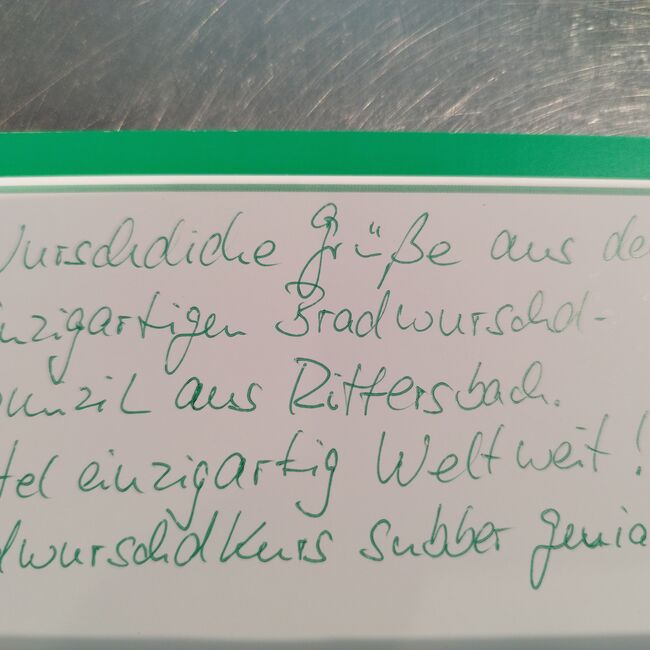 Wurschdiche Grüße aus de
inzigartigen Bradwurschd-
unzil aus Rittersbach.
tel einzigartig Weltweit!
dwurschdkurs subber genia